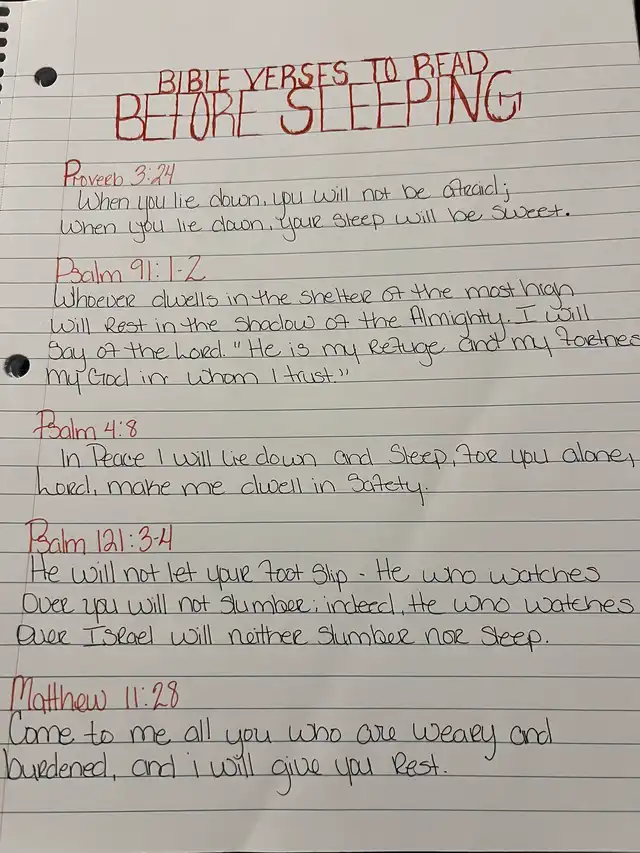 BIBLE VERSES TO READ
BEFORE SLEEPING
Proverb 3:24
When you lie down, you will not be afraid;
When you lie down, your sleep will be sweet.
Psalm 91:1-2
Whoever dwells in the shelter of the most high
will Rest in the shadow of the Almighty. I will
Say of the Lord. "He is my Refuge and my Fortres
my God in whom I trust."
Psalm 4:8
In Peace I will lie down and Sleep, For you alone,
Lord, make me dwell in Safety.
Psalm 121:3-4
He will not let your Foot Slip - He who watches
Over you will not Slumber; indeed, He who watches
Over Israel will neither Slumber nor Sleep.
Matthew 11:28
Come to me all you who are weary and
burdened, and i will give you Rest.